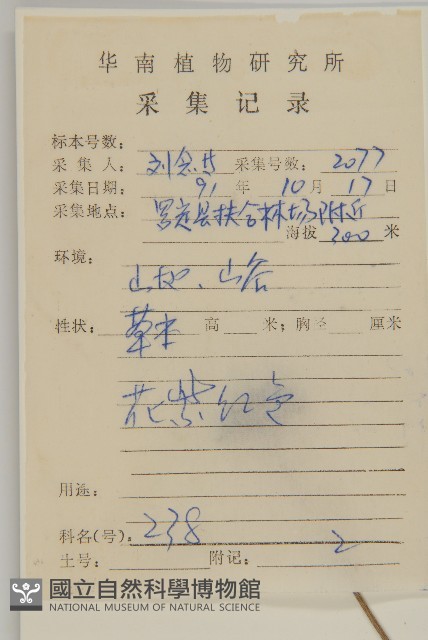 华南植物研究所
采集记录
标本号数:
采集人: 刘念 采集号数: 2077
采集日期: 91年10月17日
采集地点: 县扶合林场附近
海拔 300 米
环境:
山地、山谷
性状: 草本 高 米; 胸径 厘米
花紫红色
用途:
科名(号): 238
土号: 附记: 2
國立自然科學博物館
NATIONAL MUSEUM OF NATURAL SCIENCE